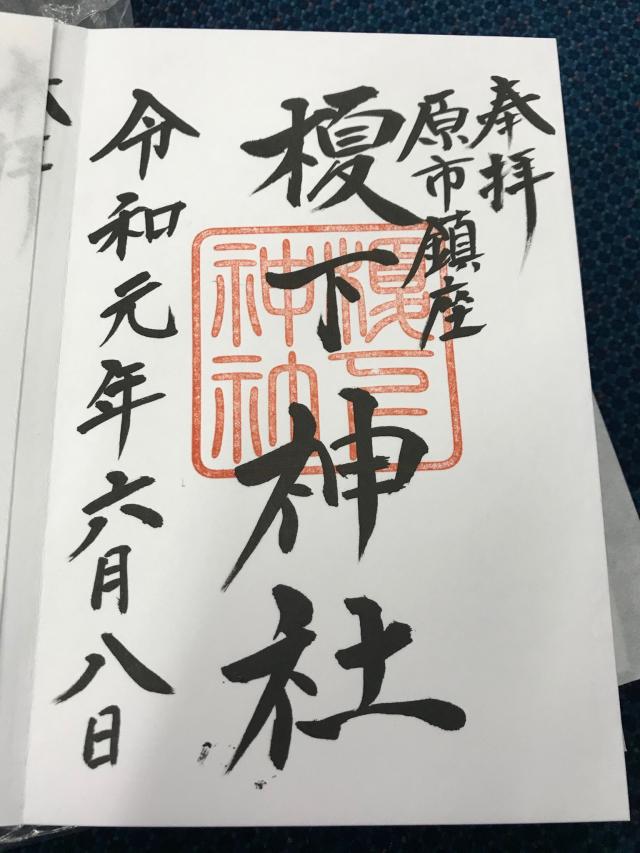 奉拝
原市鎮座
榎下神社
令和元年六月八日
榎下
神社